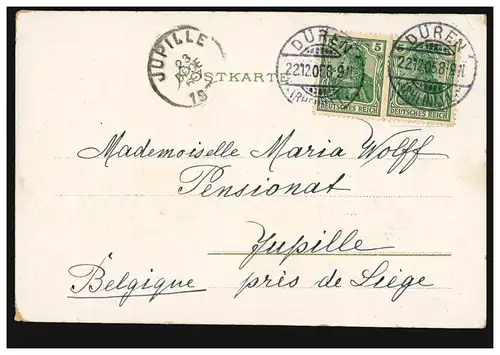 JUPILLE
23
19
POSTKARTE
DÜREN
22.12.05.8-9V.
5
DEUTSCHES REICH
DÜREN
22.12.05.8-9V.
DEUTSCHES REICH
Mademoiselle Maria Wolff
Pensionat
Jupille
Belgique près de Liége